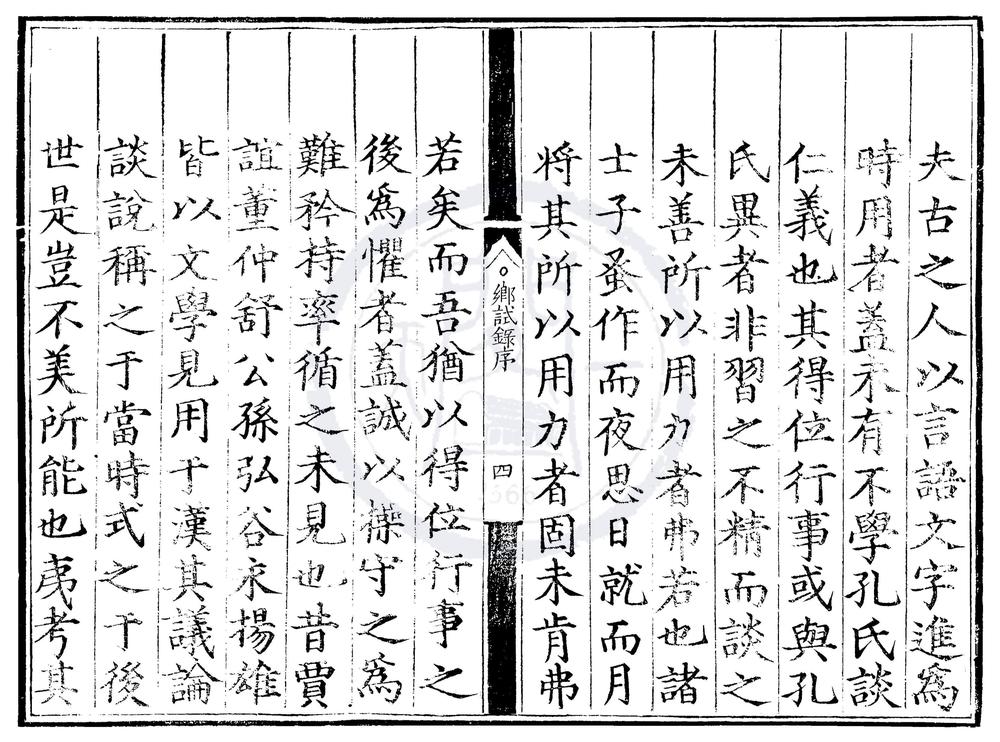 夫古之人以言語文字進爲
時用者蓋未有不學孔氏談
仁義也其得位行事或與孔
氏異者非習之不精而談之
未善所以用力者弗若也諸
士子蚤作而夜思日就而月
將其所以用力者固未肯弗
鄉試錄序
四
若矣而吾猶以得位行事之
後爲懼者蓋誠以操守之爲
難矜持率循之未見也昔賈
誼董仲舒公孫弘谷永揚雄
皆以文學見用于漢其議論
談說稱之于當時式之于後
世是豈不美所能也夷考其